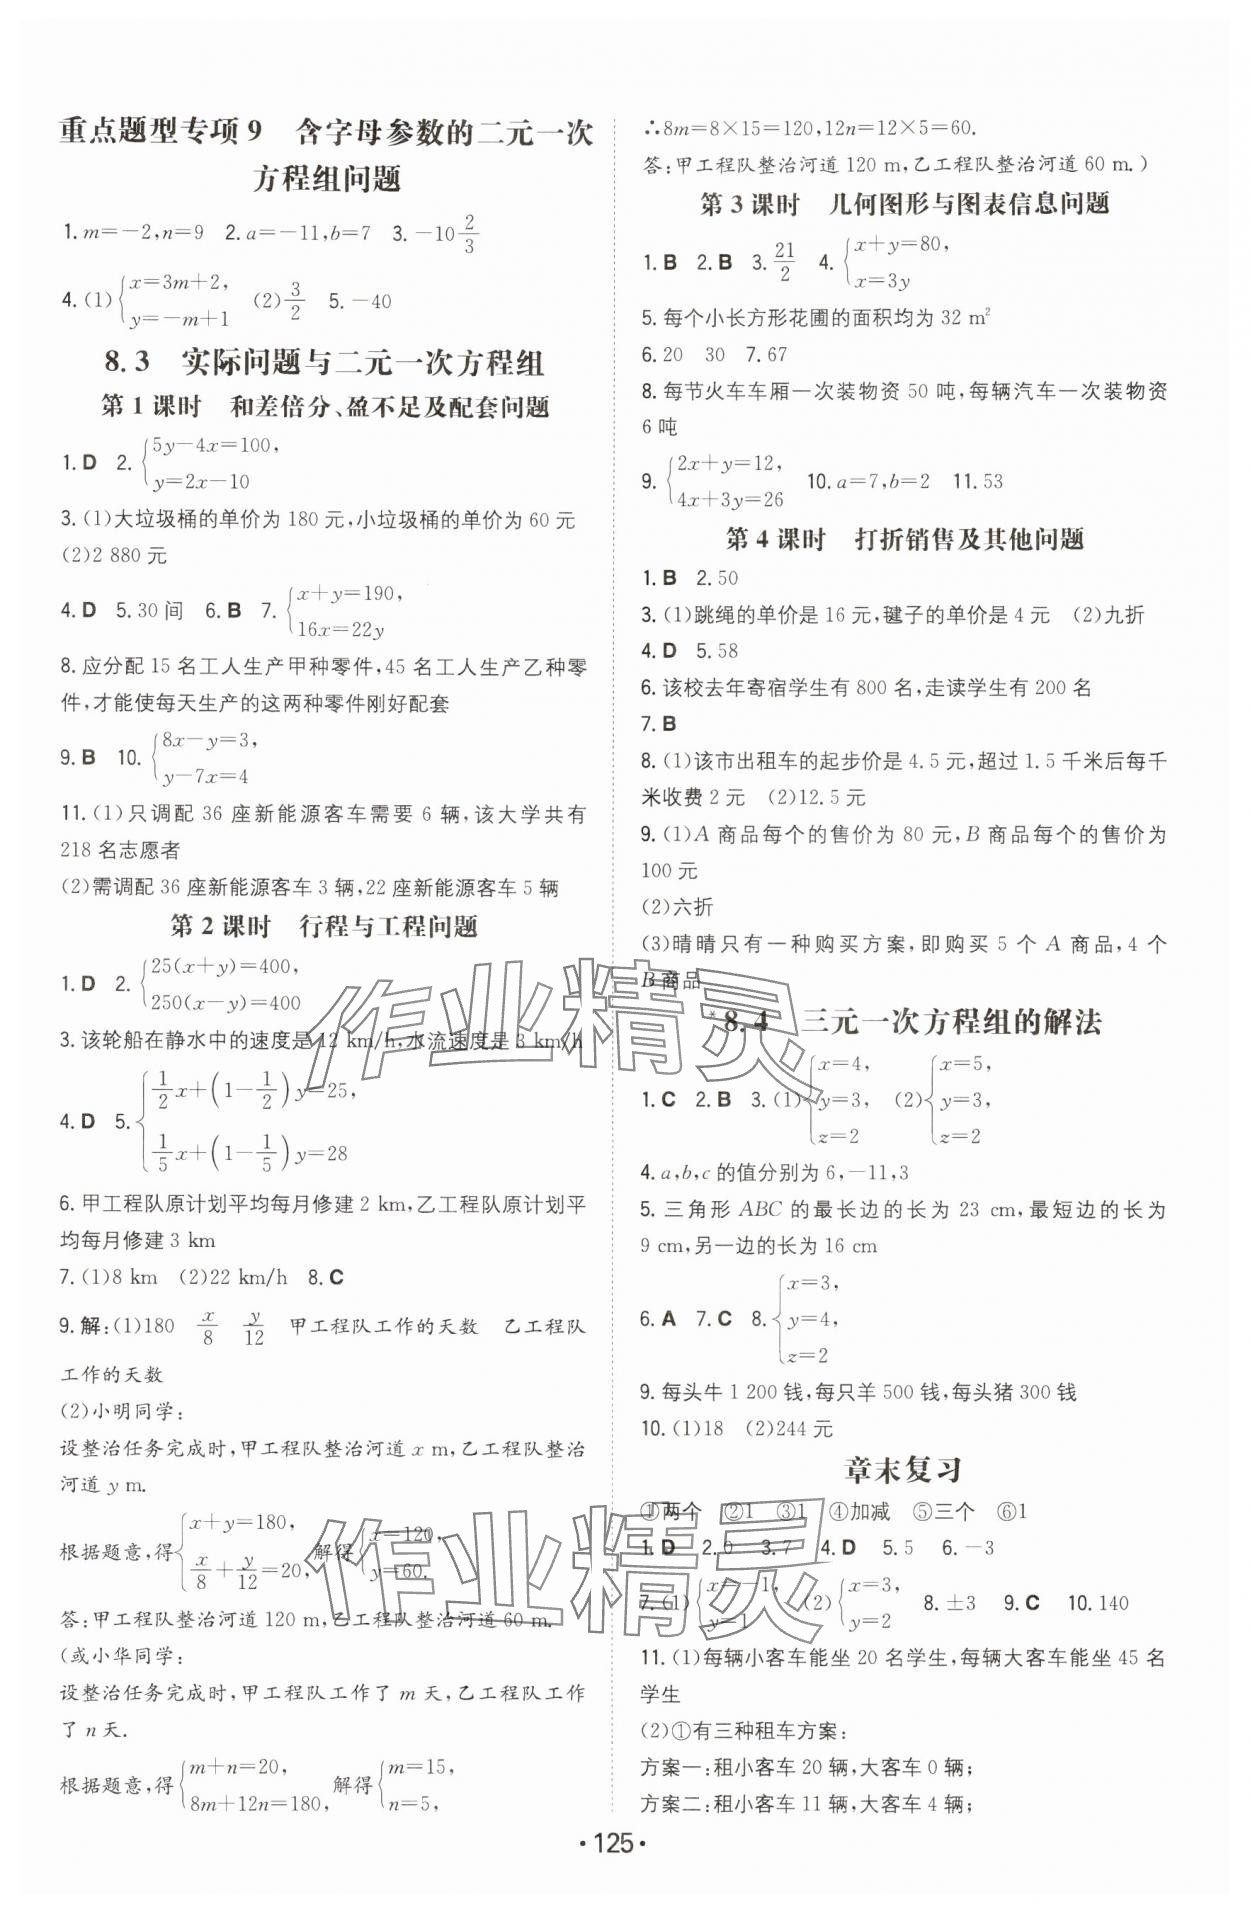 重点题型专项9　含字母参数的二元一次
方程组问题
1. m=-2,n=9　2. a=-11,b=7　3. -10 2/3
4. (1){x=3m+2, y=-m+1　(2)3/2　5. -40
8.3　实际问题与二元一次方程组
第1课时　和差倍分、盈不足及配套问题
1. D　2. {5y-4x=100, y=2x-10
3. (1)大垃圾桶的单价为180元,小垃圾桶的单价为60元
(2)2 880元
4. D　5. 30间　6. B　7. {x+y=190, 16x=22y
8. 应分配15名工人生产甲种零件,45名工人生产乙种零
件,才能使每天生产的这两种零件刚好配套
9. B　10. {8x-y=3, y-7x=4
11. (1)只调配36座新能源客车需要6辆,该大学共有
218名志愿者
(2)需调配36座新能源客车3辆,22座新能源客车5辆
第2课时　行程与工程问题
1. D　2. {25(x+y)=400, 250(x-y)=400
3. 该轮船在静水中的速度是12 km/h,水流速度是3 km/h
4. D　5. {1/2 x+(1-1/2)y=25, 1/5 x+(1-1/5)y=28
6. 甲工程队原计划平均每月修建2 km,乙工程队原计划平
均每月修建3 km
7. (1)8 km　(2)22 km/h　8. C
9. 解:(1)180　x/8　y/12　甲工程队工作的天数　乙工程队
工作的天数
(2)小明同学:
设整治任务完成时,甲工程队整治河道x m,乙工程队整治
河道y m.
根据题意,得{x+y=180, x/8+y/12=20, 解得{x=120, y=60.
答:甲工程队整治河道120 m,乙工程队整治河道60 m.
(或小华同学:
设整治任务完成时,甲工程队工作了m天,乙工程队工作
了n天.
根据题意,得{m+n=20, 8m+12n=180, 解得{m=15, n=5,
∴8m=8×15=120,12n=12×5=60.
答:甲工程队整治河道120 m,乙工程队整治河道60 m.)
第3课时　几何图形与图表信息问题
1. B　2. B　3. 21/2　4. {x+y=80, x=3y
5. 每个小长方形花圃的面积均为32 m²
6. 20　30　7. 67
8. 每节火车车厢一次装物资50吨,每辆汽车一次装物资
6吨
9. {2x+y=12, 4x+3y=26　10. a=7,b=2　11. 53
第4课时　打折销售及其他问题
1. B　2. 50
3. (1)跳绳的单价是16元,毽子的单价是4元　(2)九折
4. D　5. 58
6. 该校去年寄宿学生有800名,走读学生有200名
7. B
8. (1)该市出租车的起步价是4.5元,超过1.5千米后每千
米收费2元　(2)12.5元
9. (1)A商品每个的售价为80元,B商品每个的售价为
100元
(2)六折
(3)晴晴只有一种购买方案,即购买5个A商品,4个
B商品
*8.4　三元一次方程组的解法
1. C　2. B　3. (1){x=4, y=3, z=2　(2){x=5, y=3, z=2
4. a,b,c的值分别为6,-11,3
5. 三角形ABC的最长边的长为23 cm,最短边的长为
9 cm,另一边的长为16 cm
6. A　7. C　8. {x=3, y=4, z=2
9. 每头牛1 200钱,每只羊500钱,每头猪300钱
10. (1)18　(2)244元
章末复习
①两个　②1　③1　④加减　⑤三个　⑥1
1. D　2. 0　3. 7　4. D　5. 5　6. -3
7. (1){x=-1, y=1　(2){x=3, y=2　8. ±3　9. C　10. 140
11. (1)每辆小客车能坐20名学生,每辆大客车能坐45名
学生
(2)①有三种租车方案:
方案一:租小客车20辆,大客车0辆;
方案二:租小客车11辆,大客车4辆;
·125·
作业精灵
作业精灵